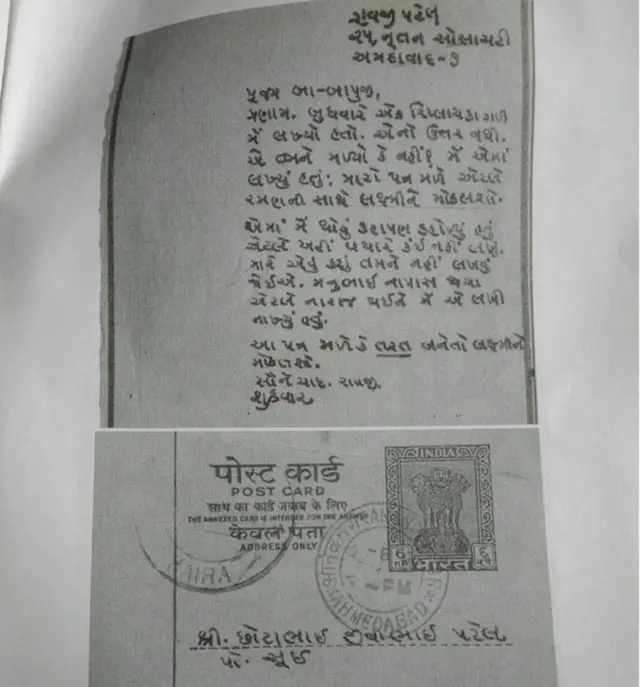 રાવજી પટેલ
૨૫, નૂતન સોસાયટી
અમદાવાદ-૭
પૂજ્ય બા-બાપુજી,
પ્રણામ. બુધવારે એક રિપ્લાયકાગળ
મેં લખ્યો હતો. એનો ઉત્તર નથી.
એ તમને મળ્યો કે નહીં? મેં એમાં
લખ્યું હતું: મારો પત્ર મળે એટલે
રમણની સાથે લક્ષ્મીને મોકલશો.
એમાં મેં થોડું ડહાપણ ડહોળ્યું હતું
એટલે અહીં વધારે કંઈ નહીં લખું.
મારે એવું કશું તમને નહીં લખવું
જોઈએ. મનુભાઈ નાપાસ થયા
એટલે નારાજ થઈને મેં એ લખી
નાખ્યું હતું.
આ પત્ર મળે કે તરત બનેતો લક્ષ્મીને
સૌને યાદ. રાવજી.
શુક્રવાર
पोस्ट कार्ड
POST CARD
साथ का कार्ड जवाब के लिए
THE ANNEXED CARD IS INTENDED FOR THE ANSWER
केवल पता
ADDRESS ONLY
INDIA
६ न.पै.
भारत
KAIRA
AHMEDABAD
શ્રી. છોટાભાઈ જીવાભાઈ પટેલ
પો. સૂઈ